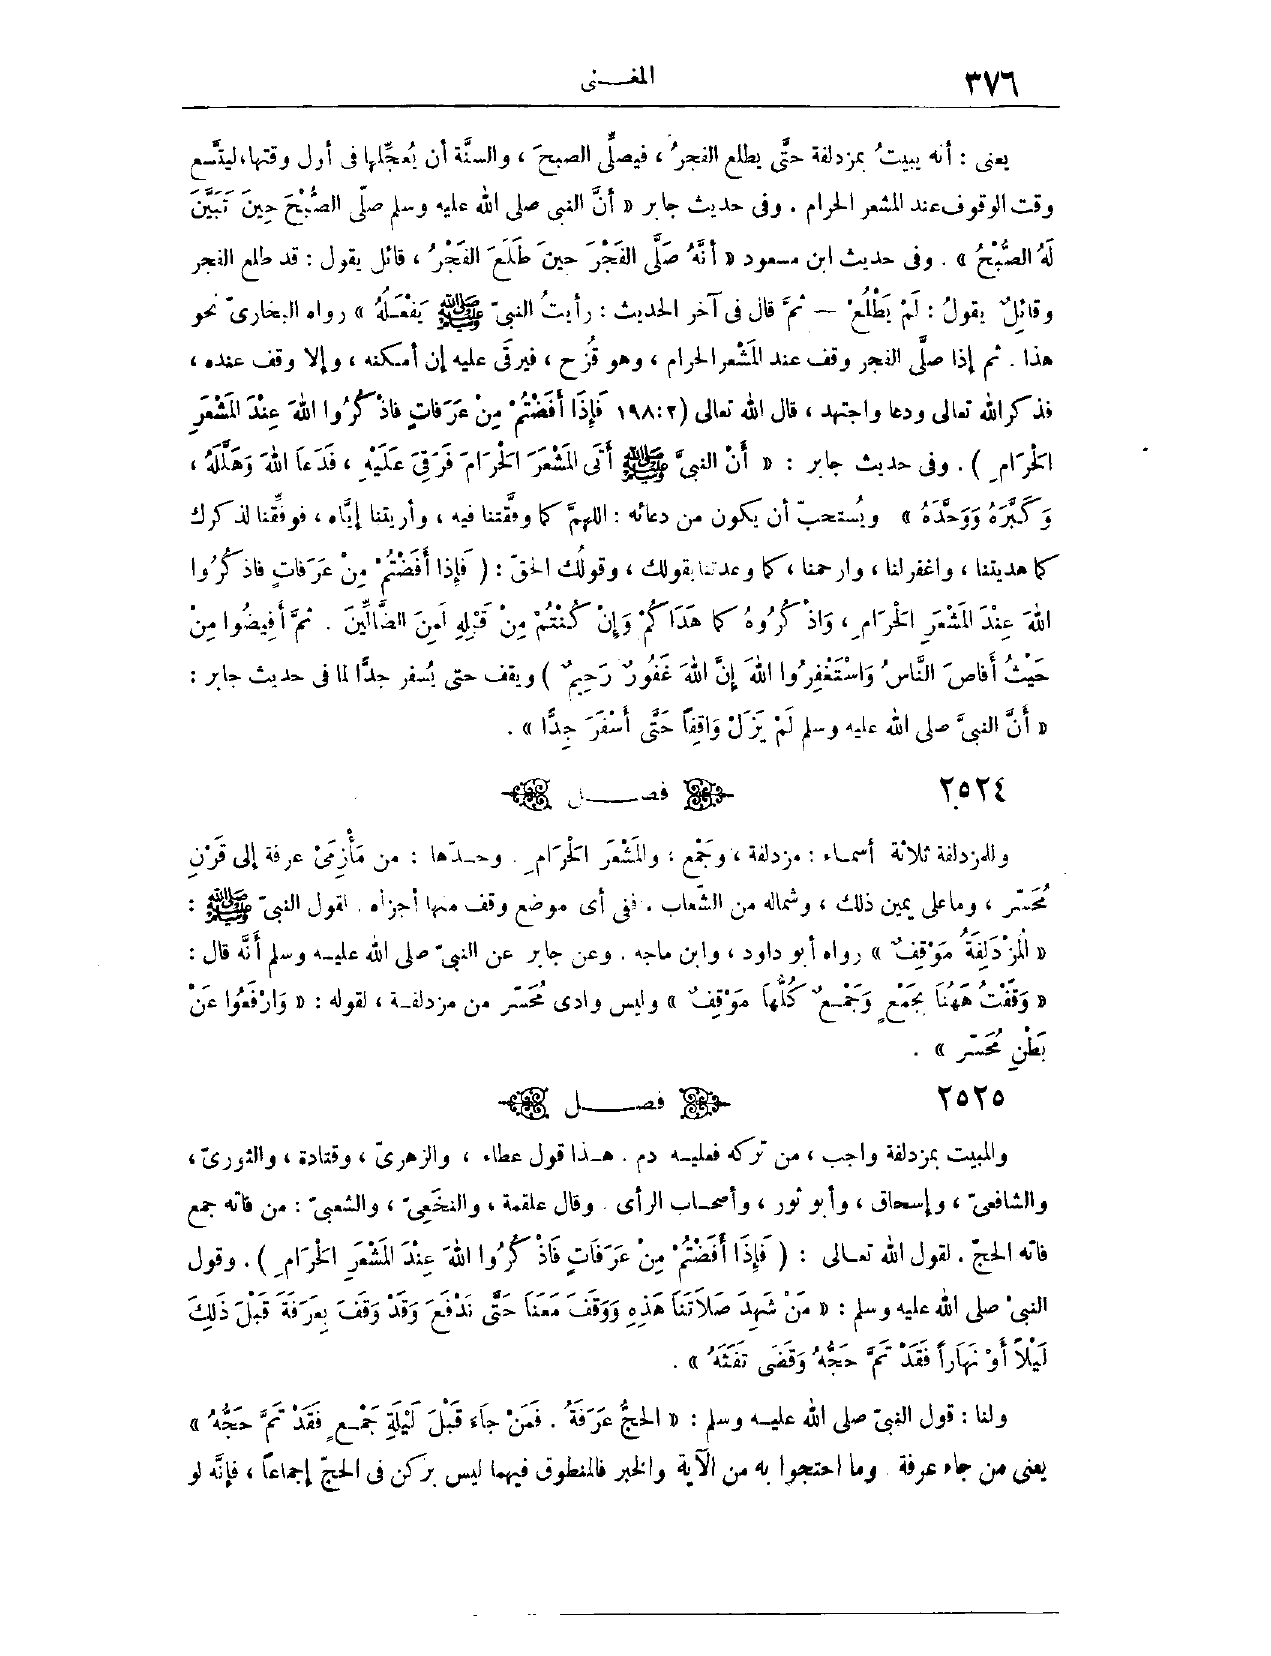 ٣٧٦
المغـــنى
يعنى : أنه يبيتُ بمزدلفة حتَّى يطلع الفجرُ ، فيصلِّى الصبحَ ، والسنَّة أن يُعجِّلها فى أول وقتها، ليتَّسع
وقت الوقوف عند المشعر الحرام . وفى حديث جابر « أنَّ النبى صلى الله عليه وسلم صلَّى الصُّبْحَ حِينَ تَبَيَّنَ
لَهُ الصُّبْحُ » . وفى حديث ابن مسعود « أنَّهُ صَلَّى الفَجْرَ حينَ طَلَعَ الفَجْرُ ، قائل يقول : قد طلع الفجر
وقائلٌ يقولُ : لَمْ يَطْلُعْ – ثمَّ قال فى آخر الحديث : رأيتُ النبىّ ﷺ يَفْعَلُهُ » رواه البخارىّ نحو
هذا . ثم إذا صلَّى الفجر وقف عند المَشْعر الحرام ، وهو قُزَح ، فيرقَى عليه إن أمكنه ، وإلا وقف عنده ،
فذكر الله تعالى ودعا واجتهد ، قال الله تعالى ( ٢ : ١٩٨ فَإِذَا أَفَضْتُمْ مِنْ عَرَفَاتٍ فاذْكُرُوا اللهَ عِنْدَ المَشْعَرِ
الحَرَامِ ) . وفى حديث جابر : « أَنْ النبىَّ ﷺ أَتَى المَشْعَرَ الحَرَامَ فَرَقِىَ عَلَيْهِ ، فَدَعَا اللهَ وَهَلَّلَهُ ،
وَكَبَّرَهُ وَوَحَّدَهُ » ويُستحبّ أن يكون من دعائه : اللهمَّ كما وقَّقتنا فيه ، وأريتنا إيَّاه ، فوفِّقنا لذكرك
كما هديتنا ، واغفر لنا ، وارحمنا ، كما وعدتنا بقولك ، وقولُك الحقّ : ( فَإِذا أَفَضْتُمْ مِنْ عَرَفاتٍ فاذكُرُوا
اللهَ عِنْدَ المَشْعَرِ الحَرَامِ ، وَاذْكُرُوهُ كما هَدَاكُمْ وَإِنْ كُنْتُمْ مِنْ قَبْلِهِ لَمِنَ الضَّالِّينَ . ثمَّ أَفِيضُوا مِنْ
حَيْثُ أَفاضَ النَّاسُ وَاسْتَغْفِرُوا اللهَ إِنَّ اللهَ غَفُورٌ رَحِيمٌ ) ويقف حتى يُسفر جدًّا لما فى حديث جابر :
« أَنَّ النبىَّ صلى الله عليه وسلم لَمْ يَزَلْ وَاقِفاً حَتَّى أَسْفَرَ جِدًّا » .
٢٥٢٤
فصـــل
وللمزدلفة ثلاثة أسماء : مزدلفة ، وجَمْع ، والمَشْعَر الحَرَامِ . وحـدّها : من مَأْزِمَىْ عرفة إلى قَرْنِ
مُحَسّر ، وما على يمين ذلك ، وشماله من الشّعاب . ففى أى موضع وقف منها أجزأه . لقول النبىّ ﷺ :
« المُزْدَلِفَةُ مَوْقِفٌ » رواه أبو داود ، وابن ماجه . وعن جابر عن النبىّ صلى الله عليـه وسلم أنَّه قال :
« وَقَفْتُ هٰهُنَا بِجَمْعٍ وَجَمْعٌ كُلُّها مَوْقِفٌ » وليس وادى مُحَسّر من مزدلفـة ، لقوله : « وَارْفَعُوا عَنْ
بَطْنِ مُحَسّر » .
٢٥٢٥
فصـــل
والمبيت بمزدلفة واجب ، من تركه فعليـه دم . هـذا قول عطاء ، والزهرىّ ، وقتادة ، والثورىّ ،
والشافعىّ ، وإسحاق ، وأبو ثور ، وأصحـاب الرأى . وقال علقمة ، والنخَعِىّ ، والشعبىّ : من فاته جمع
فاته الحجّ . لقول الله تعـالى : ( فَإِذَا أَفَضْتُمْ مِنْ عَرَفَاتٍ فَاذْكُرُوا اللهَ عِنْدَ المَشْعَرِ الحَرَامِ ) . وقول
النبىّ صلى الله عليه وسلم : « مَنْ شَهِدَ صَلَاتَنَا هَذِهِ وَوَقَفَ مَعَنَا حَتَّى نَدْفَعَ وَقَدْ وَقَفَ بِعَرَفَةَ قَبْلَ ذَلِكَ
لَيْلاً أَوْ نَهَاراً فَقَدْ تَمَّ حَجُّهُ وَقَضَى تَفَثَهُ » .
ولنا : قول النبىّ صلى الله عليـه وسلم : « الحجُّ عَرَفَةُ . فَمَنْ جَاءَ قَبْلَ لَيْلَةِ جَمْـعٍ فَقَدْ تَمَّ حَجُّهُ »
يعنى من جاء عرفة . وما احتجوا به من الآية والخبر فالمنطوق فيهما ليس بركن فى الحجّ إجماعاً ، فإنَّه لو